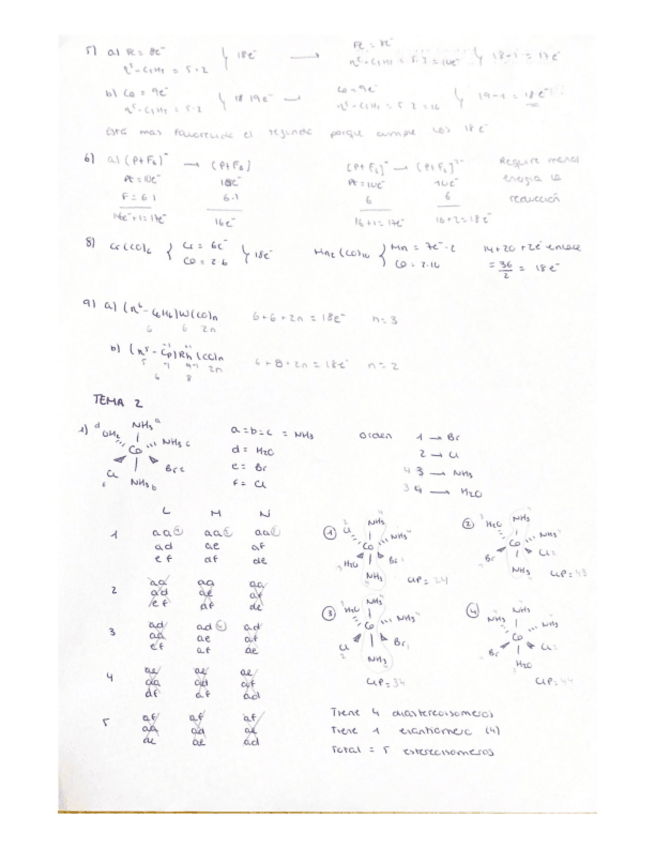 5) a) Fe = 8e⁻ } 18e⁻ ⟶ Fe = 8e⁻ } 18-1 = 17e⁻
η⁵-C₅H₅ = 5·2 η⁵-C₅H₅ = 5·2 = 10e⁻
b) Co = 9e⁻ } 19e⁻ ⟶ Co = 9e⁻ } 19-1 = 18e⁻
η⁵-C₅H₅ = 5·2 η⁵-C₅H₅ = 5·2 = 10
Está mas favorecida el segundo porque cumple los 18e⁻
6) a) (PtF₆)⁻ ⟶ (PtF₆) (PtF₆)⁻ ⟶ (PtF₆)²⁻ Require menos
Pt = 10e⁻ 10e⁻ Pt = 10e⁻ 10e⁻ energia la
F = 6·1 6·1 6 6 reducción
16e⁻+1 = 17e⁻ 16e⁻ 16+1 = 17e⁻ 16+2 = 18e⁻
8) Cr(CO)₆ { Cr = 6e⁻ } 18e⁻ Mn₂(CO)₁₀ { Mn = 7e⁻·2 14+20+2e⁻ enlace
CO = 2·6 CO = 2·10 = 36/2 = 18e⁻
9) a) (η⁶-C₆H₆)W(CO)n 6+6+2n = 18e⁻ n = 3
6 6 2n
b) (η⁵-Cp)Rh(CO)n 6+8+2n = 18e⁻ n = 2
5 2n
6 8
TEMA 2
1) a=b=c = NH₃ orden 1 → Br
d = H₂O 2 → Cl
e = Br 3 → NH₃
f = Cl 4 → H₂O
d OH₂ NH₃ a NH₃ c Co Cl f NH₃ b Br e
L M N
1 aa aa aa
ad ae af
ef df de
2 aa aa aa
ad ae af
ef df de
3 ad ad ad
aa ae af
ef af ae
4 ae ae ae
aa ad af
df af ad
5 af af af
aa ad ae
de ae ad
① Cl NH₃ NH₃ Co H₂O Br NH₃ UP = 24
② H₂O NH₃ NH₃ Co Br Cl NH₃ UP = 43
③ H₂O NH₃ NH₃ Co Cl Br NH₃ UP = 34
④ NH₃ NH₃ NH₃ Co Br Cl H₂O UP = 44
Tiene 4 diastereoisomeros
Tiene 1 enantiomero (4)
Total = 5 estereoisomeros